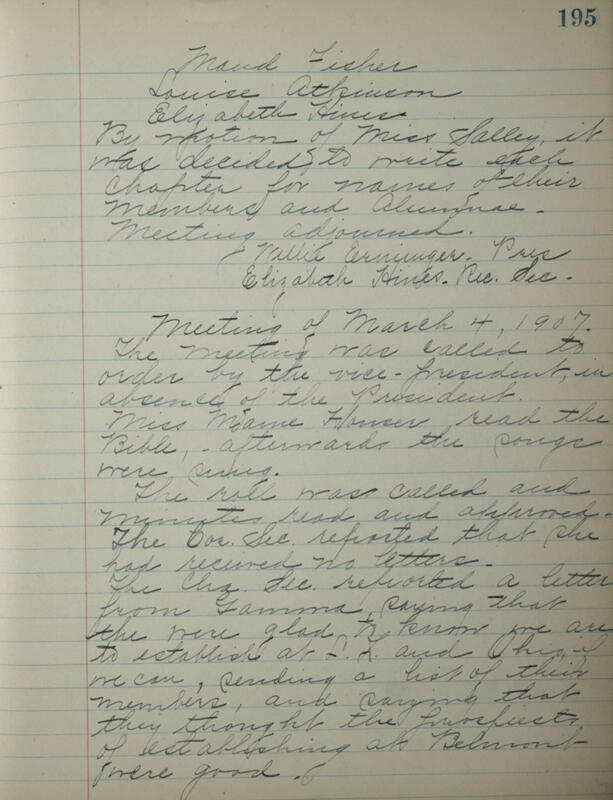 195
Maud Fisher
Louise Atkinson
Elizabeth Hines
By motion of Miss Salley, it
was decided to write each
Chapter for names of their
members and Alumnae.
Meeting adjourned.
Willie Erminger. Pres
Elizabeth Hines. Rec. Sec.
Meeting of March 4, 1907.
The meeting was called to
order by the vice-president, in
absence of the President.
Miss Mame Houser read the
Bible, - afterwards the songs
were sung.
The roll was called and
minutes read and approved.
The Cor. Sec. reported that she
had received no letters.
The Chg. Sec. reported a letter
from Gamma, saying that
the were glad to know we are
to establish at and Ohio if
we can, sending a list of their
members, and saying that
they thought the prospects
of establishing at Belmont
were good.